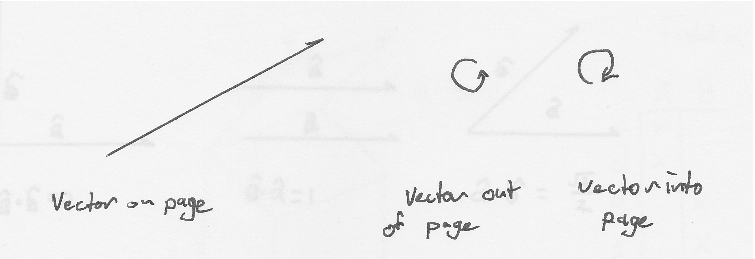 Vector on page
Vector out
of page
vector into
page